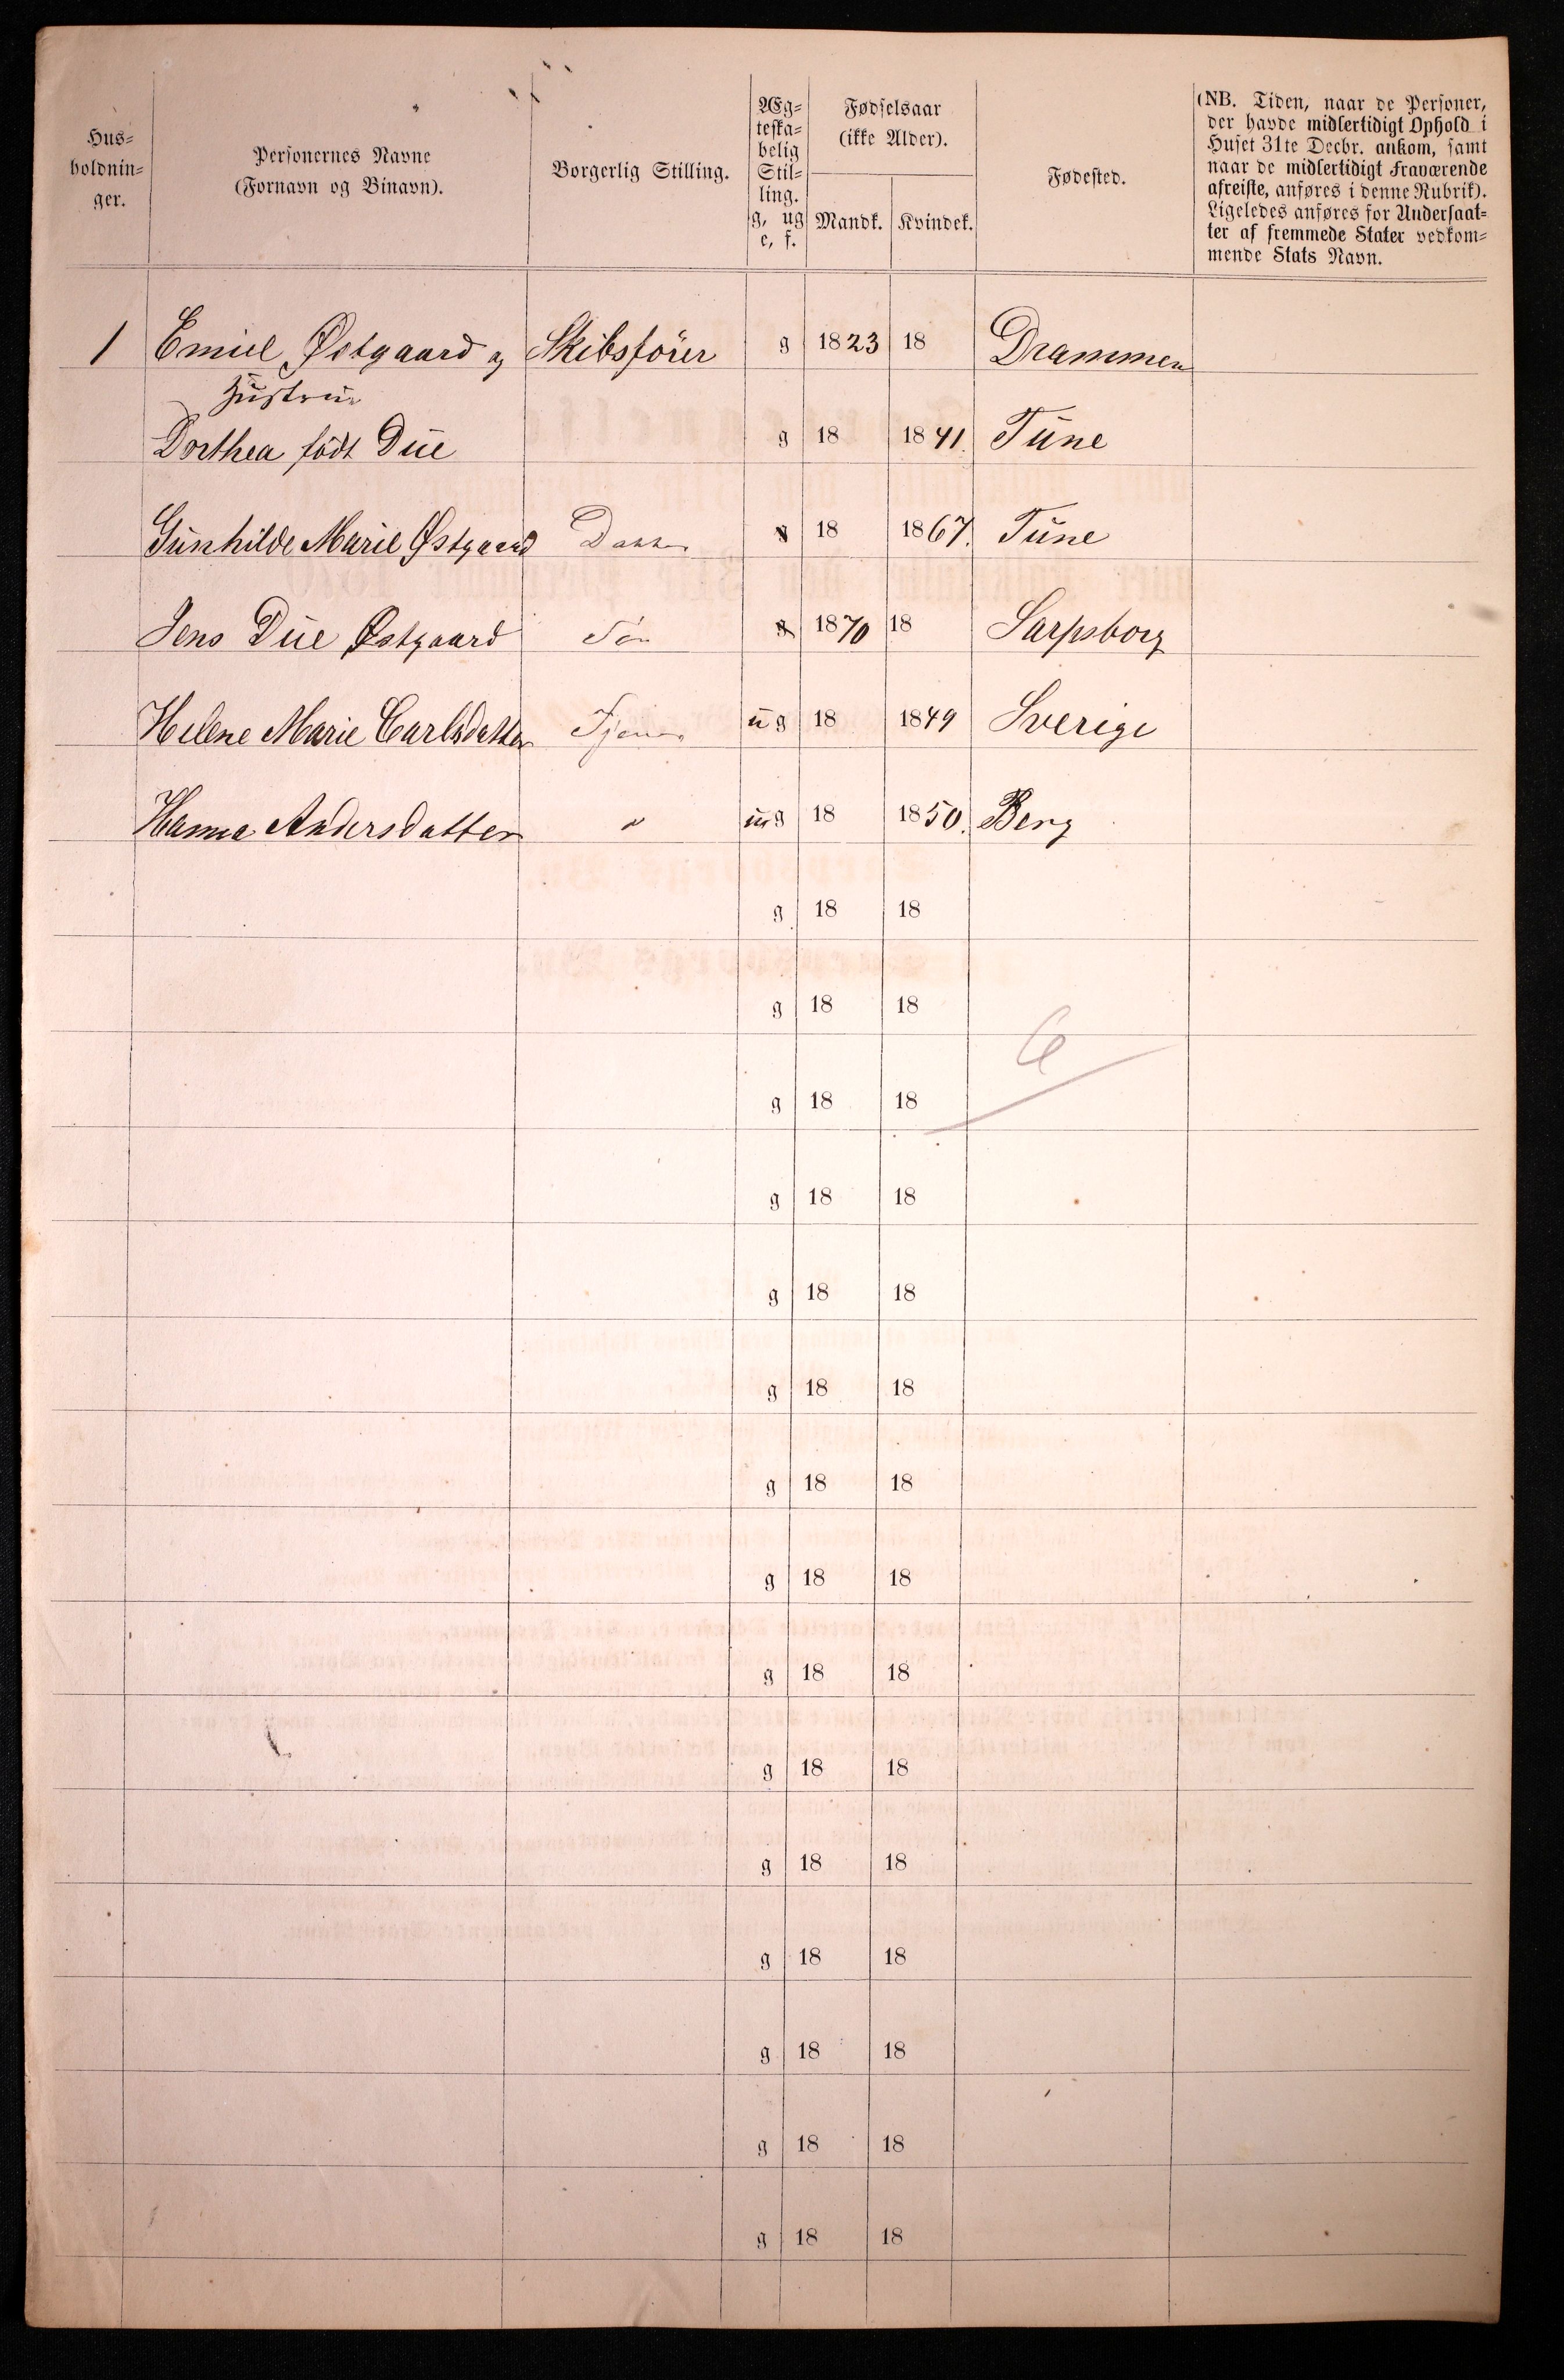 Hus=
holdnin=
ger.
Personernes Navne
(Fornavn og Binavn).
Borgerlig Stilling.
Æg=
teska=
belig
Stil=
ling.
g, ug
e, f.
Fødselsaar
(ikke Alder).
Mandk. Kvindek.
Fødested.
(NB. Tiden, naar de Personer,
der havde midlertidigt Ophold i
Huset 31te Decbr. ankom, samt
naar de midlertidigt Fraværende
afreiste, anføres i denne Rubrik).
Ligeledes anføres for Undersaat=
ter af fremmede Stater vedkom=
mende Stats Navn.
1 Emiel Østgaard og Skibsförer g 1823 18 Drammen
Hustrue
Dorthea födt Düe g 18 1841. Tüne
Günhilde Marie Østgaard Datter g 18 1867. Tüne
Jens Düe Østgaard Sön g 1870 18 Sarpsborg
Helene Marie Carlsdatter Tjener üg 18 1849 Sverige
Hanna Andersdatter " üg 18 1850. Berg
g 18 18
g 18 18
6
g 18 18
g 18 18
g 18 18
g 18 18
g 18 18
g 18 18
g 18 18
g 18 18
g 18 18
g 18 18
g 18 18
g 18 18
g 18 18